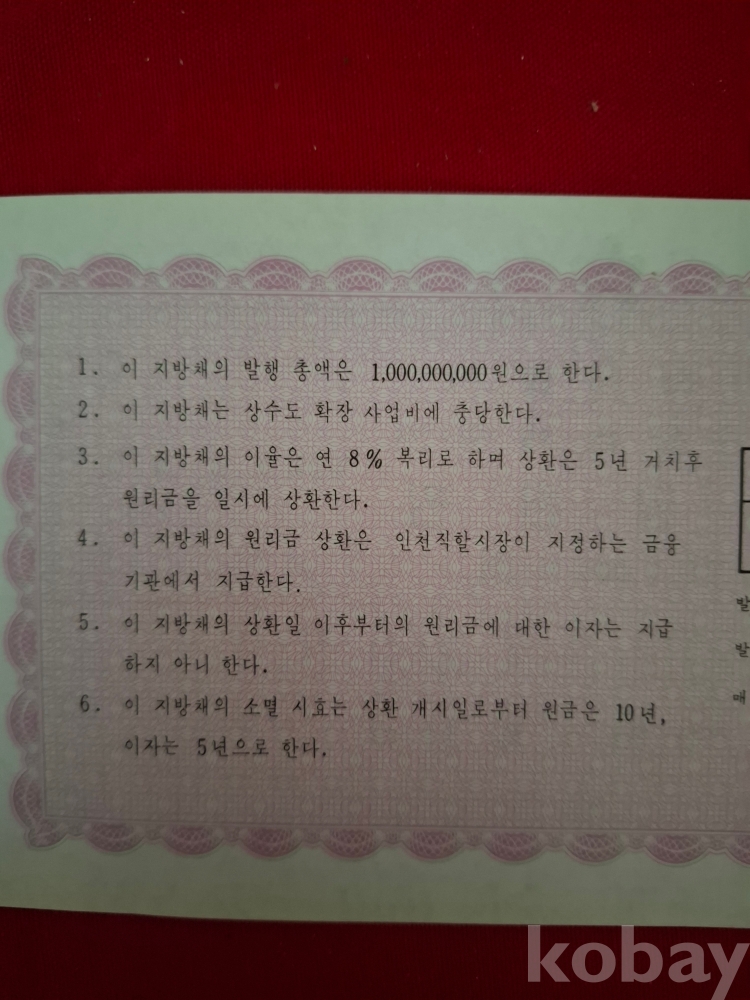 1. 이 지방채의 발행 총액은 1,000,000,000원으로 한다.
2. 이 지방채는 상수도 확장 사업비에 충당한다.
3. 이 지방채의 이율은 연 8% 복리로 하며 상환은 5년 거치후
원리금을 일시에 상환한다.
4. 이 지방채의 원리금 상환은 인천직할시장이 지정하는 금융
기관에서 지급한다.
5. 이 지방채의 상환일 이후부터의 원리금에 대한 이자는 지급
하지 아니 한다.
6. 이 지방채의 소멸 시효는 상환 개시일로부터 원금은 10년,
이자는 5년으로 한다.
발
발
매
kobay